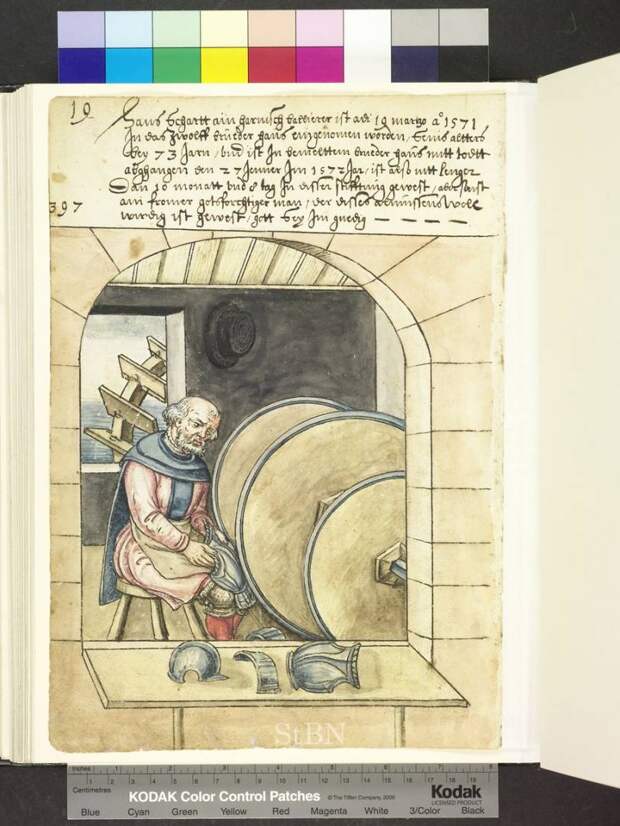 19
Hans Schartt ain harnischballierer ist adi 19 marzo aº 1571
In das Zwölff brüeder haus eingenomen worden, seins alters
bey 73 Jarn, vnd ist In bemelttem brueder haus mitt todtt
abgangen den 27 Jenner Im 1572 Jar, ist also nitt lenger
Dan 10 monatt vnd 8 tag In disser stifftung gewest, aber sunst
ain fromer gotsforchtiger man, der disses allmussens wolc
wirdig ist gewest, gott sey Im gnedig
397
StBN
Inches 1 2 3 4 5 6 7 8
Centimetres 1 2 3 4 5 6 7 8 9 10 11 12 13 14 15 16 17 18 19
KODAK Color Control Patches © The Tiffen Company, 2000
Kodak
LICENSED PRODUCT
Blue Cyan Green Yellow Red Magenta White 3/Color Black